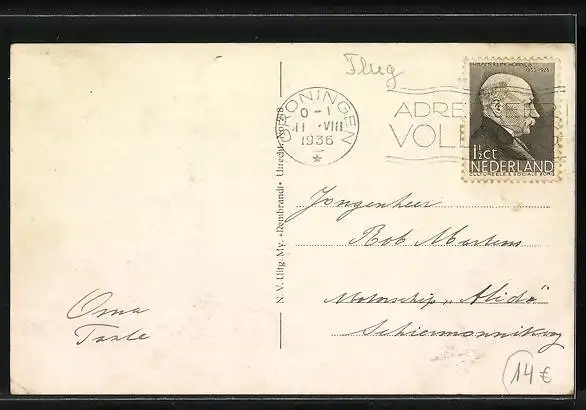 Flug
GRONINGEN
0-1
11 VIII
1936
ADRE EER
VOLL
1½ CT
NEDERLAND
CULTURELE & SOCIALE ZORG
N. V. Uitg. My. »Rembrandt« Utrecht.
Jongenheer
Bob Mertens
Motorschip „Alida"
Schiermonnikoog
Oma
Tante
14 €